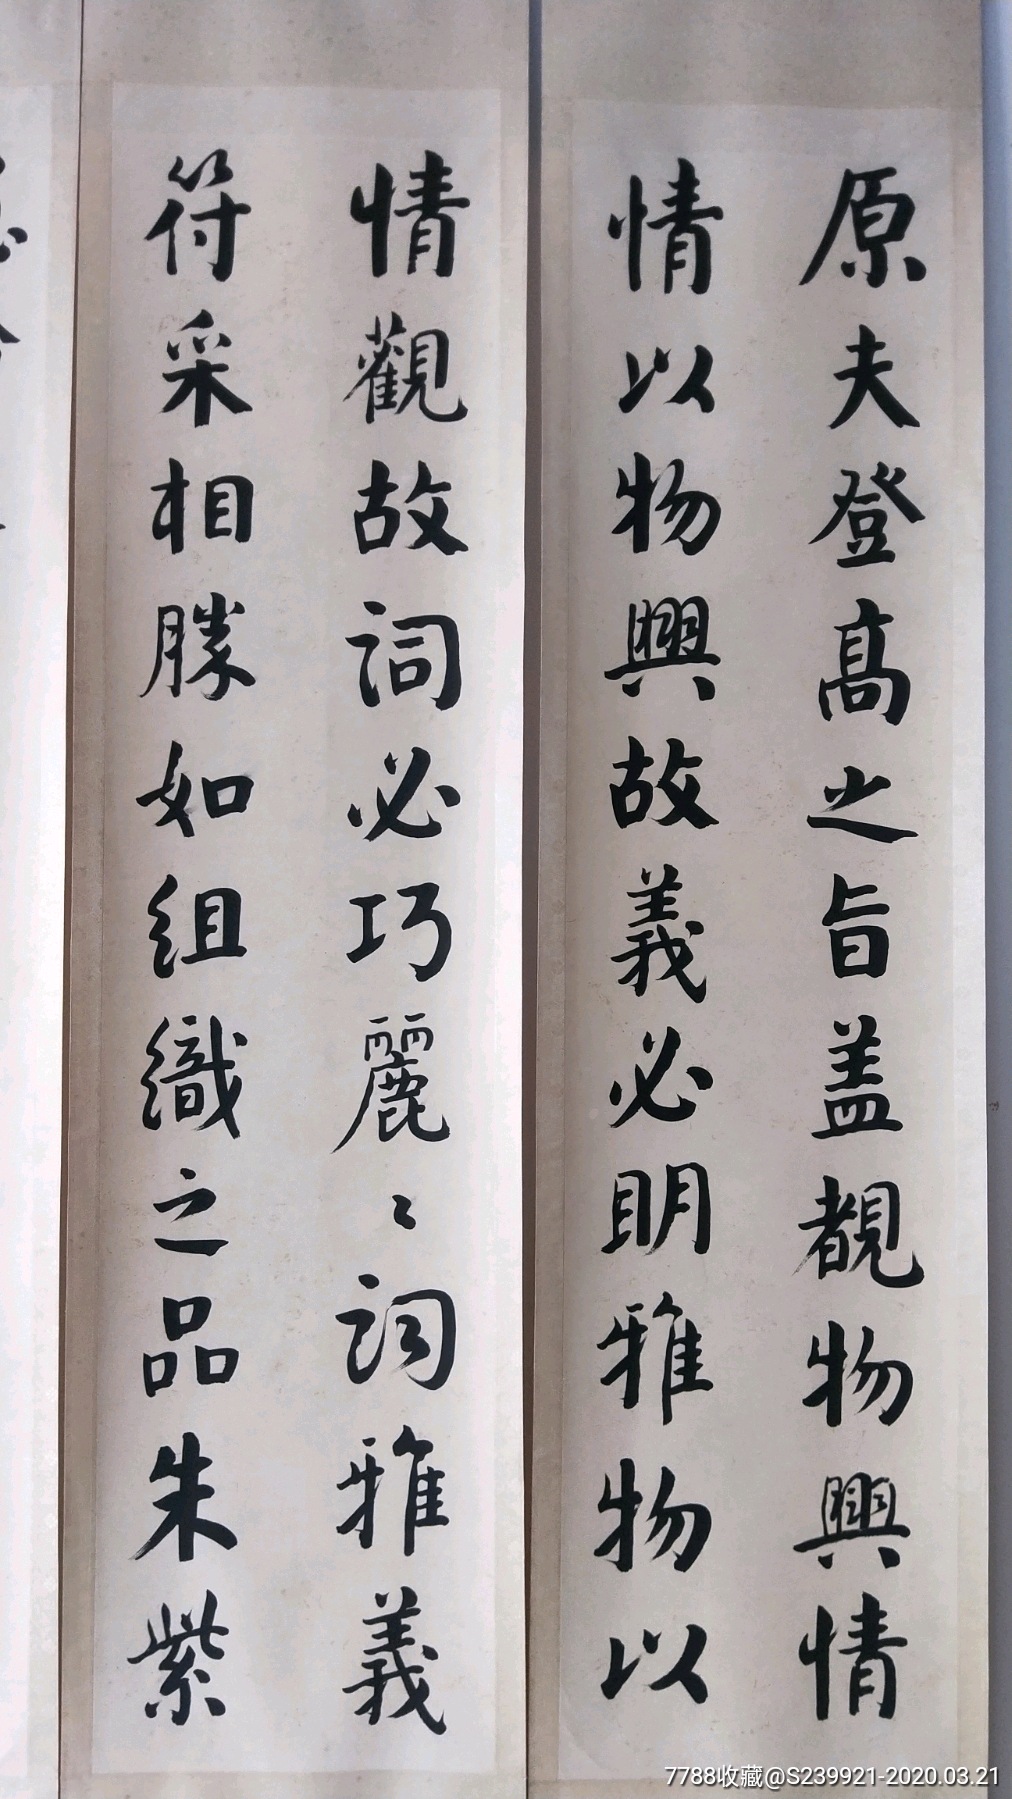 原夫登高之旨盖覩物興情
情以物興故義必明雅物以
情觀故詞必巧麗〻詞雅義
符采相勝如組織之品朱紫
7788收藏@S239921-2020.03.21